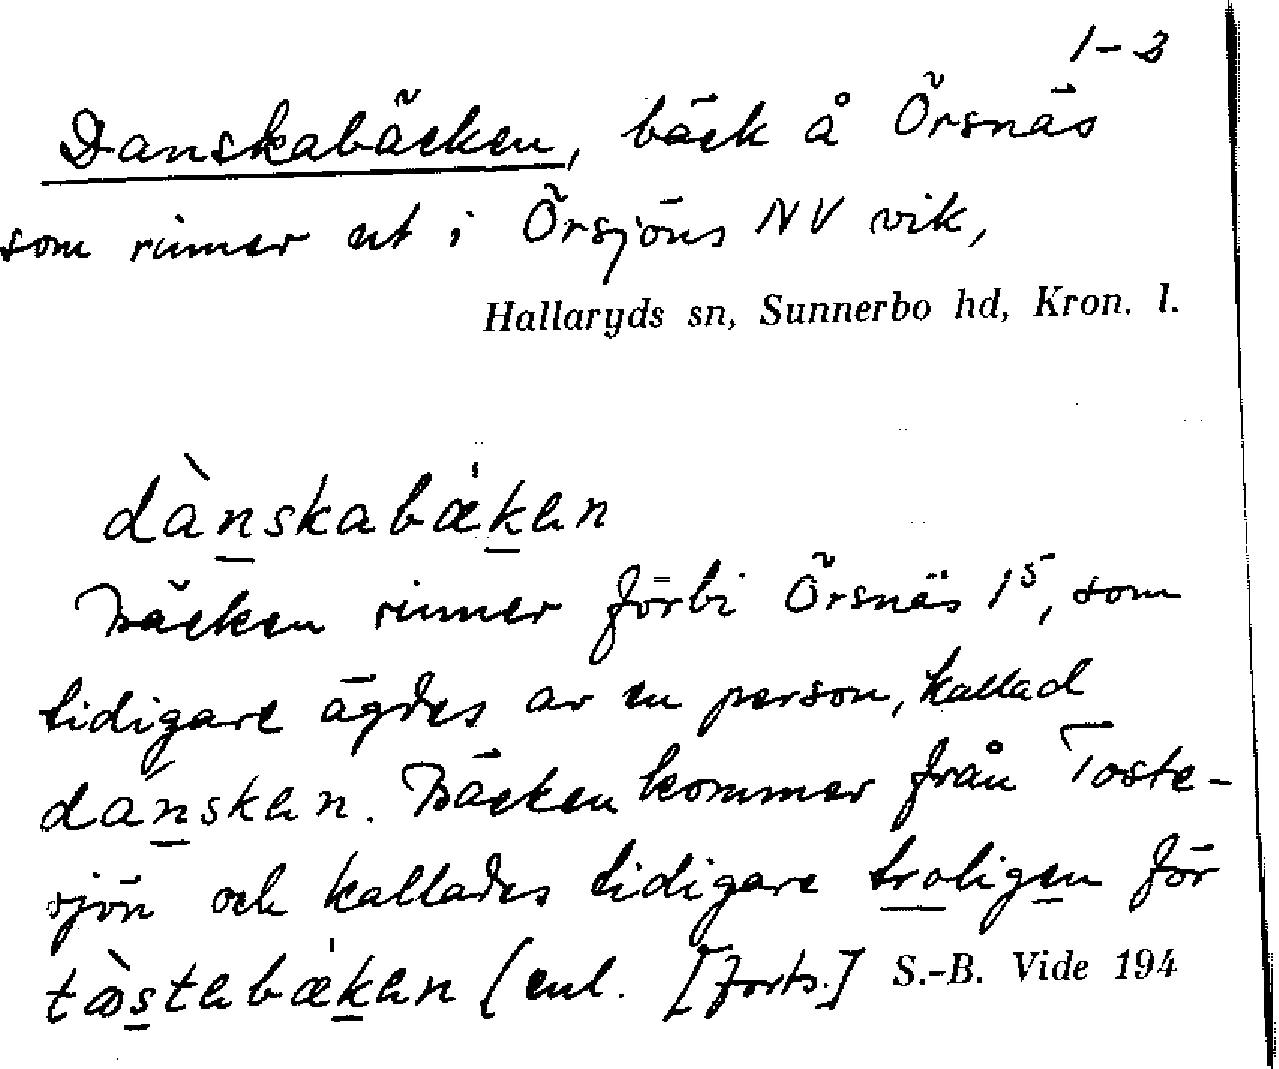 1-2
Danskabäcken, bäck å Örsnäs
som rinner ut i Örsjöns NV vik,
Hallaryds sn, Sunnerbo hd, Kron. l.
dànskabæ'ken
Bäcken rinner förbi Örsnäs 1⁵, som
tidigare ägdes av en person, kallad
dánsken. Bäcken kommer från Toste-
sjön och kallades tidigare troligen för
(enl. [forts.] S.-B. Vide 194